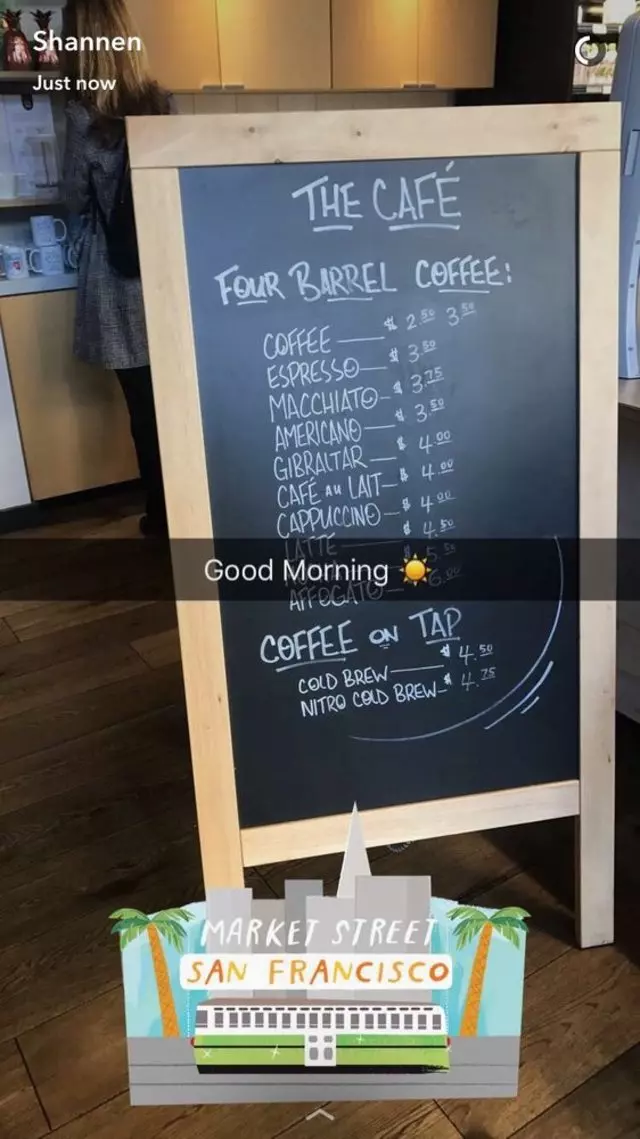 Shannen
Just now
THE CAFÉ
FOUR BARREL COFFEE:
COFFEE $ 2.50 3.50
ESPRESSO $ 3.50
MACCHIATO $ 3.75
AMERICANO $ 3.50
GIBRALTAR $ 4.00
CAFÉ AU LAIT $ 4.00
CAPPUCCINO $ 4.00
LATTE $ 4.50
5.50
Good Morning ☀️
AFFOGATO 6.00
COFFEE ON TAP
COLD BREW $ 4.50
NITRO COLD BREW $ 4.75
MARKET STREET
SAN FRANCISCO